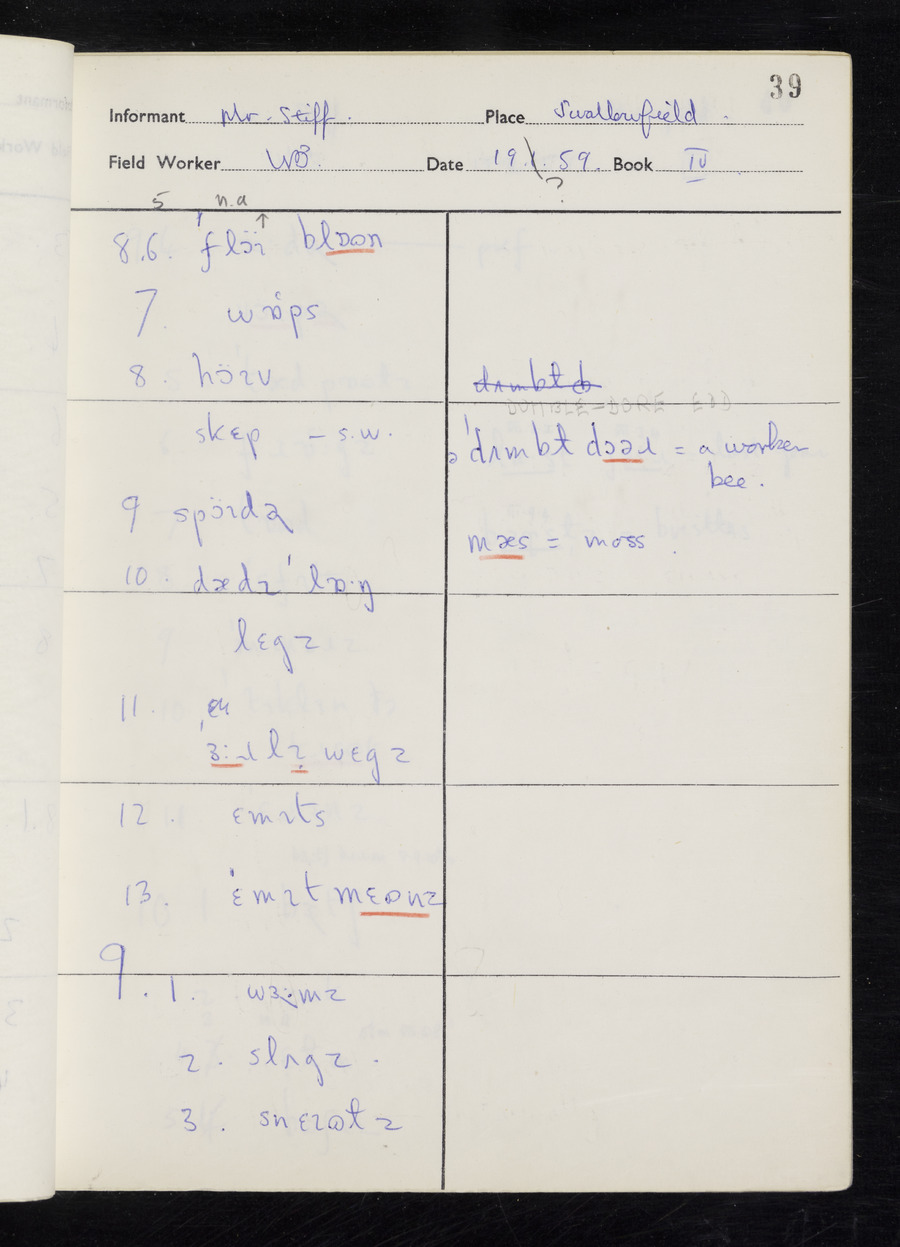 39
Informant Mr. Stiff. Place Swallowfield.
Field Worker WB. Date 19.1.59. Book IV
?
5 n.a
8.6. ˈflɔ̈ɪ blɒʊn
7 wɒ̈ps
8. hɔ̈ɪv
skɛp – s.w.
9 spɔ̈ɪdə
10. dædɪ ˈlɒ·ŋ
lɛgz
11. ˈɜ:ɹlɪ wɛgz
12. ɛmɪts
13. ˈɛmɪt mɛʊnz
9.1. wɜ:mz
2. slʌgz.
3. snɛɪɫz
dʌmbɫ d
DUMBLE-DORE EDD
ˈdʌmbɫ dɔəɹ = a worker
bee.
mæs = moss.